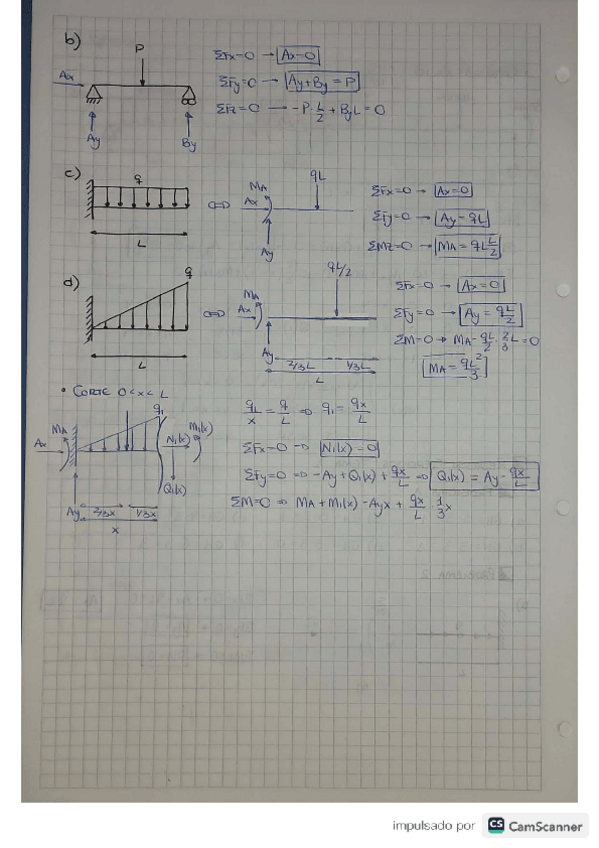 b)
P
Ax
Ay
By
ΣFx=0 → Ax=0
ΣFy=0 → Ay+By = P
ΣFz=0 → -P·L/2 + ByL = 0
c)
q
L
⇔
MA
Ax
Ay
qL
ΣFx=0 → Ax=0
ΣFy=0 → Ay=qL
ΣMz=0 → MA = qL L/2
d)
q
L
⇔
MA
Ax
Ay
qL/2
2/3L 1/3L
L
ΣFx=0 → Ax=0
ΣFy=0 → Ay = qL/2
ΣM=0 → MA - qL/2 · 2/3 L = 0
MA = qL²/3
• CORTE 0<x<L
MA
Ax
Ay
q1
N1(x)
M1(x)
Q1(x)
2/3x 1/3x
x
q1/x = q/L ⇒ q1 = qx/L
ΣFx=0 ⇒ N1(x)=0
ΣFy=0 ⇒ -Ay+Q1(x)+ qx/L ⇒ Q1(x) = Ay - qx/L
ΣM=0 ⇒ MA+M1(x) - Ayx + qx/L · 1/3 x
impulsado por CS CamScanner